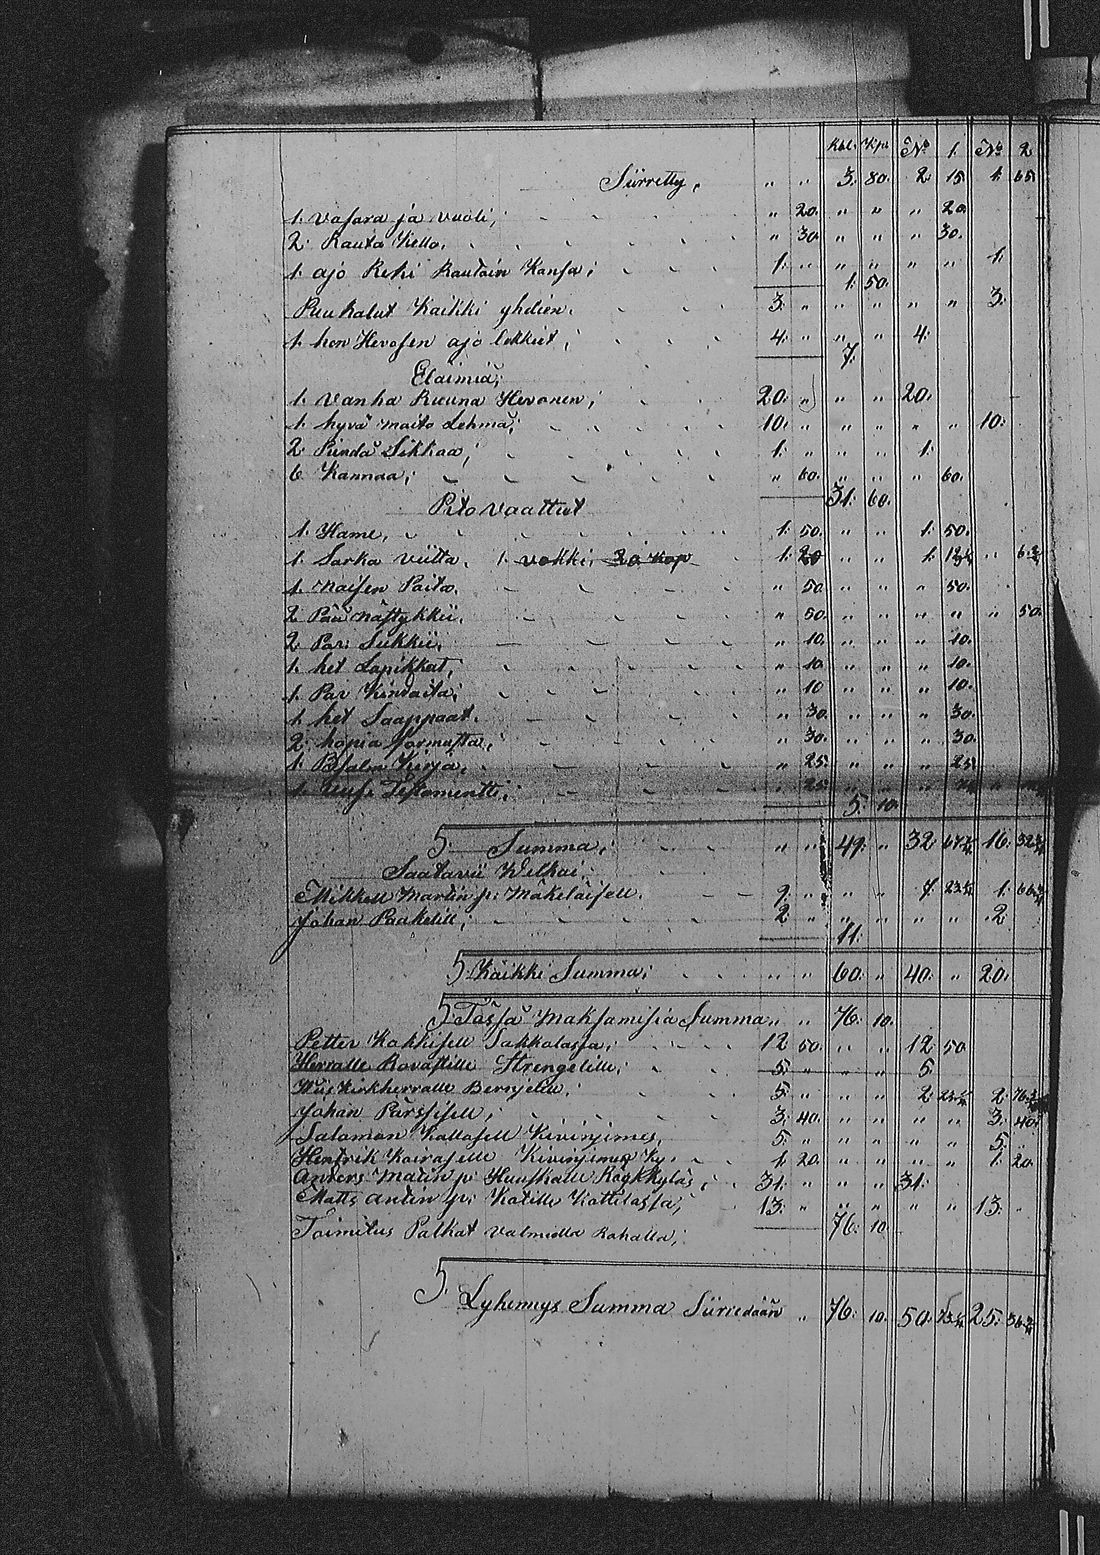 Rbl. Kpa. No 1. No 2
Siirretty, " " 3. 80. 2. 15. 1. 65.
1. Vasara ja vuoli, " 20. " " " 20.
2. Rauta Kello, " 30. " " " 30.
1. ajo Reki Rautain Kansa; 1. " " " " " 1.
1. 50.
Puu kalut Kaikki yhdien. 3. " " " " " 3.
1. hen Hevosen ajo lekkiet, 4. " " " 4.
7.
Elaimiä;
1. Vanha Ruuna Hevonen, 20. " " " 20.
1. hyvä maito Lehmä, 10. " " " " " 10.
2. Pientä Sikkaa, 1. " " " 1.
6 Kannaa; " 60. " " " 60.
31. 60.
Pito Vaattiet
1. Hame, 1. 50. " " 1. 50.
1. Sarka Viitta. 1. vokki, 30. Kop 1. 20 " " 1. " 6.
1. Naisen Paita. " 50. " " " 50.
2. Pää Nästykkii. " 50. " " " " " 50.
2. Par: Sukkii, " 10. " " " 10.
1. het Lapikkat, " 10. " " " 10.
1. Par Kindaita; " 10 " " " 10.
1. het Saappaat. " 30. " " " 30.
2. hopia Sormusta, " 30. " " " 30.
1. Psalm Kirja, " 25. " " " 25.
1. Uusi Testamentti, " 25.
5. 10.
S. Summa, " " 49. " 32. 16.
Saatavii Welkai;
Mikkell Martin p: Mäkeläisell. 9. " " " 7. 1.
Johan Paakelill, 2 " " " " " 2.
11.
S. Kaikki Summa; " " 60. " 40. " 20.
S. Tässä Maksamisia Summa " " 76. 10.
Petter Kokkisell Sakkolassa; 12 50. " " 12 50
Herralle Rovastille Strengelille, 5. " " " 5.
Kirkherralle 5. " " " 2. 2.
Johan Pärssisell, 3. 40. " " " " 3. 40.
Salomon Kallasell Kivinjimes, 5. " " " " " 5.
Henrik Koirasell Kivinjimes Ky. 1. 20. " " " " 1. 20.
Anders Matin p: 31. " " " 31.
Matts Antin p: Katille Kottilassa, 13. " " " " " 13. "
76. 10.
Toimitus Palkat Valmiella Rahalla,
S. Lyhennys Summa Siirredään " 76. 10. 50. 25.